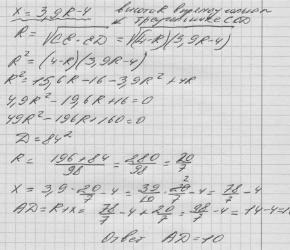 X = 3,9R-4
высота в прямоугольном
треугольнике COD
R = √CE·ED = √(4-R)(3,9R-4)
R² = (4-R)(3,9R-4)
R² = 15,6R-16-3,9R²+4R
4,9R²-19,6R+16=0
49R²-196R+160=0
D=84²
R = (196+84)/98 = 280/98 = 20/7
X = 3,9·20/7-4 = 39/10·20/7-4 = 78/7-4
AD=R+x= 78/7-4+20/7 = 98/7-4=14-4=10
Ответ AD=10